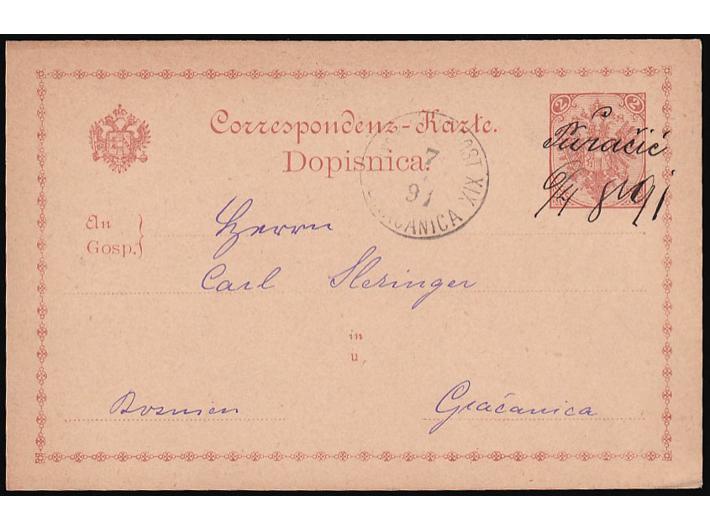 Correspondenz-Karte.
Dopisnica.
2 2
Puračić
91
7
91
OST XIX
ČANICA
An
Gosp.
Herrn
Carl Sleringer
in
u
Bosnien Gračanica